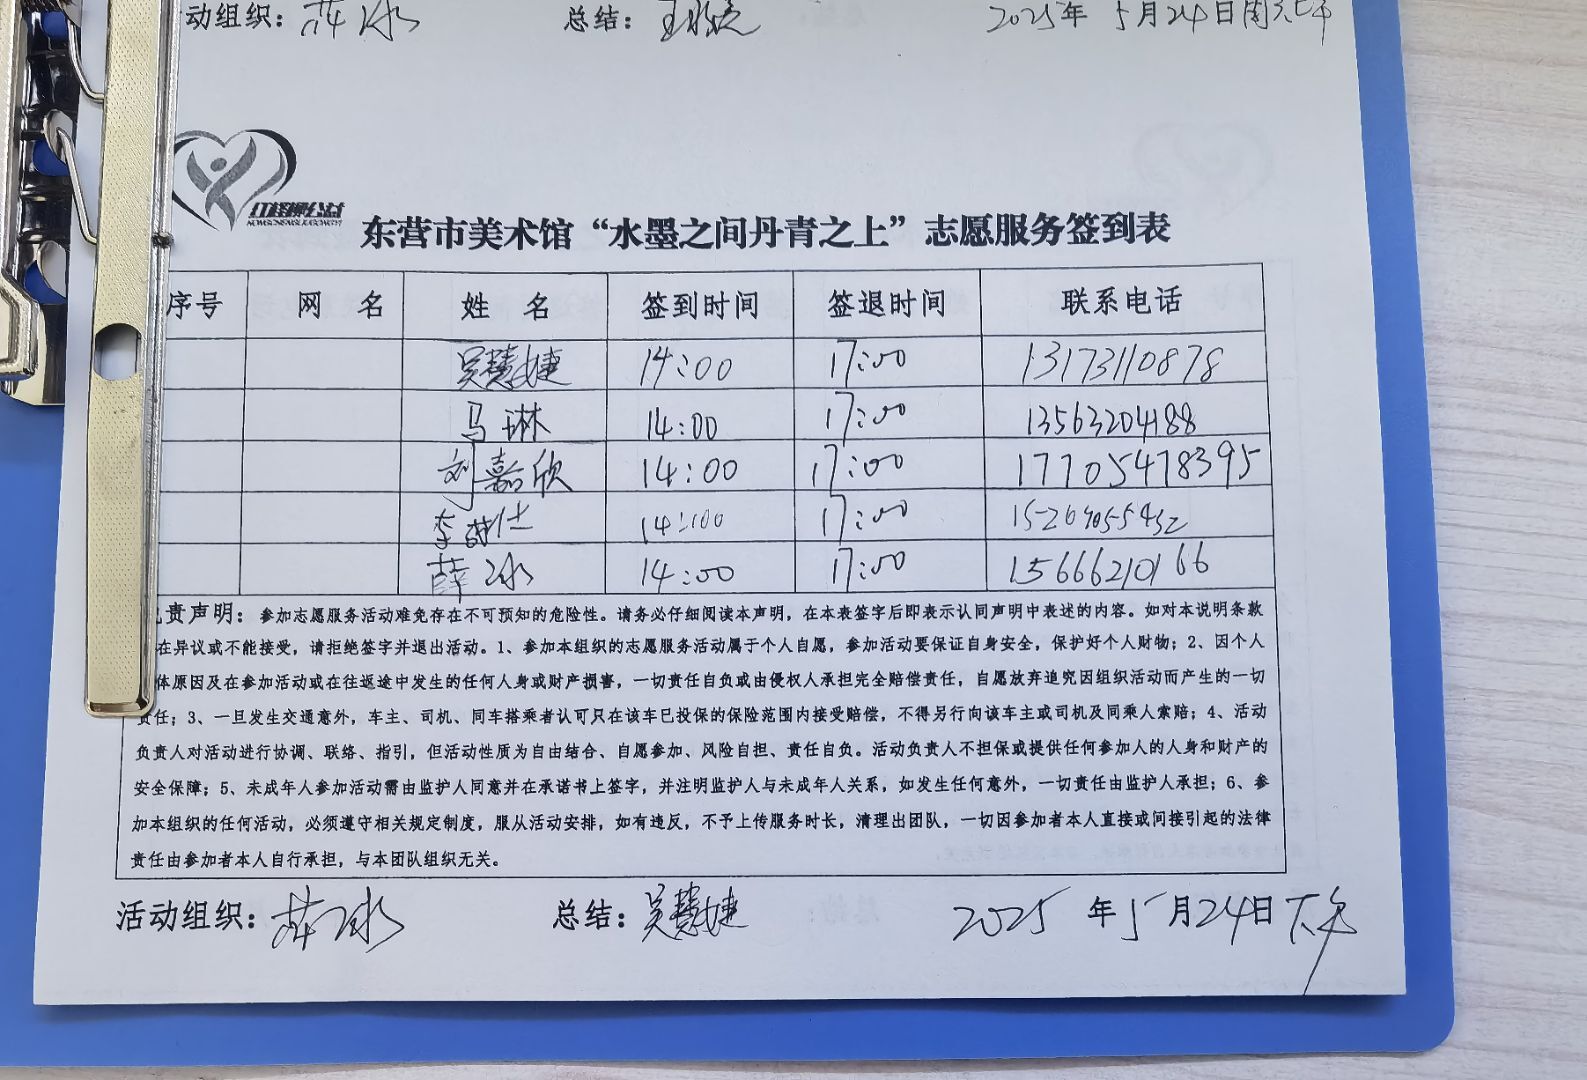 动组织：薛冰 总结： 2025年 5月24日周六上午
红柽柳公益
东营市美术馆“水墨之间丹青之上”志愿服务签到表
序号 网 名 姓 名 签到时间 签退时间 联系电话
吴慧婕 14:00 17:00 13173110878
马琳 14:00 17:00 13563204188
刘嘉欣 14:00 17:00 17705478395
李 14:00 17:00
薛冰 14:00 17:00 15666210166
责声明：参加志愿服务活动难免存在不可预知的危险性。请务必仔细阅读本声明，在本表签字后即表示认同声明中表述的内容。如对本说明条款
在异议或不能接受，请拒绝签字并退出活动。1、参加本组织的志愿服务活动属于个人自愿，参加活动要保证自身安全，保护好个人财物；2、因个人
体原因及在参加活动或在往返途中发生的任何人身或财产损害，一切责任自负或由侵权人承担完全赔偿责任，自愿放弃追究因组织活动而产生的一切
责任；3、一旦发生交通意外，车主、司机、同车搭乘者认可只在该车已投保的保险范围内接受赔偿，不得另行向该车主或司机及同乘人索赔；4、活动
负责人对活动进行协调、联络、指引，但活动性质为自由结合、自愿参加、风险自担、责任自负。活动负责人不担保或提供任何参加人的人身和财产的
安全保障；5、未成年人参加活动需由监护人同意并在承诺书上签字，并注明监护人与未成年人关系，如发生任何意外，一切责任由监护人承担；6、参
加本组织的任何活动，必须遵守相关规定制度，服从活动安排，如有违反，不予上传服务时长，清理出团队，一切因参加者本人直接或间接引起的法律
责任由参加者本人自行承担，与本团队组织无关。
活动组织：薛冰 总结：吴慧婕 2025 年 5月24日下午